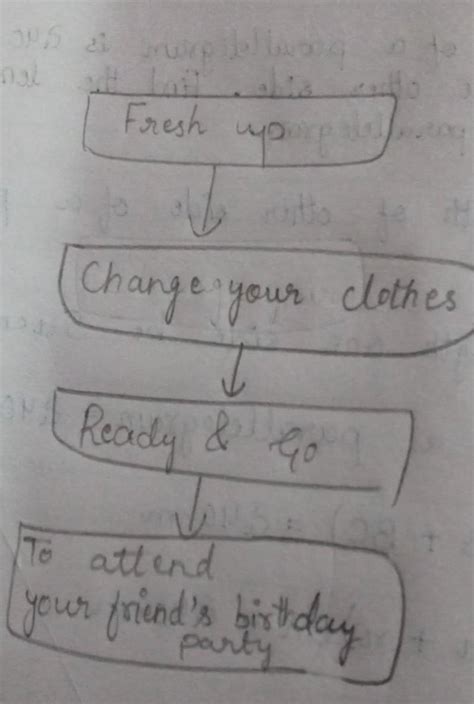 Fresh up
Change your clothes
Ready & Go
To attend
your friend's birthday
party